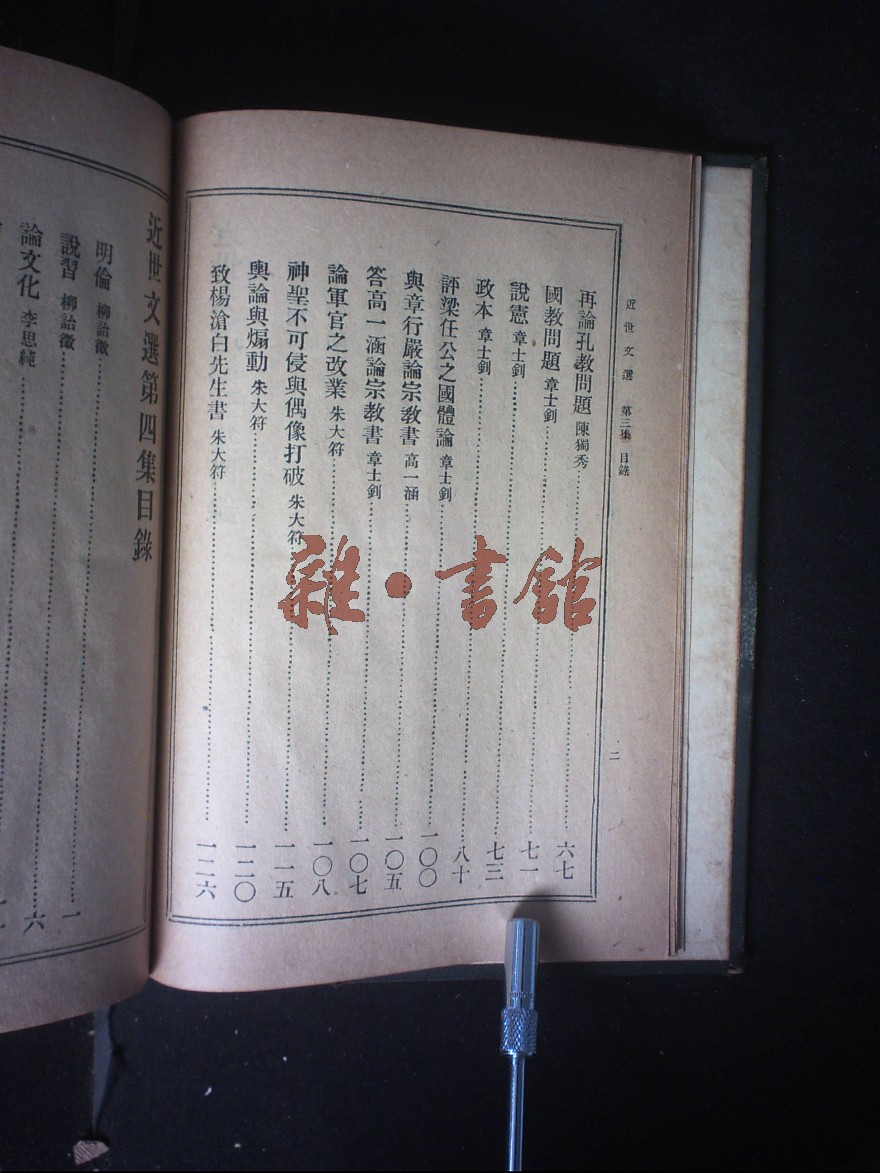 近世文選 第三集 目錄 二
再論孔教問題 陳獨秀 六七
國教問題 章士釗 七一
說憲 章士釗 七三
政本 章士釗 八十
評梁任公之國體論 章士釗 一〇〇
與章行嚴論宗教書 高一涵 一〇五
答高一涵論宗教書 章士釗 一〇七
論軍官之改業 朱大符 一〇八
神聖不可侵與偶像打破 朱大符 一一五
輿論與煽動 朱大符 一二〇
致楊滄白先生書 朱大符 一二六
近世文選第四集目錄
明倫 柳詒徵 一
說習 柳詒徵 六
論文化 李思純
雜·書館